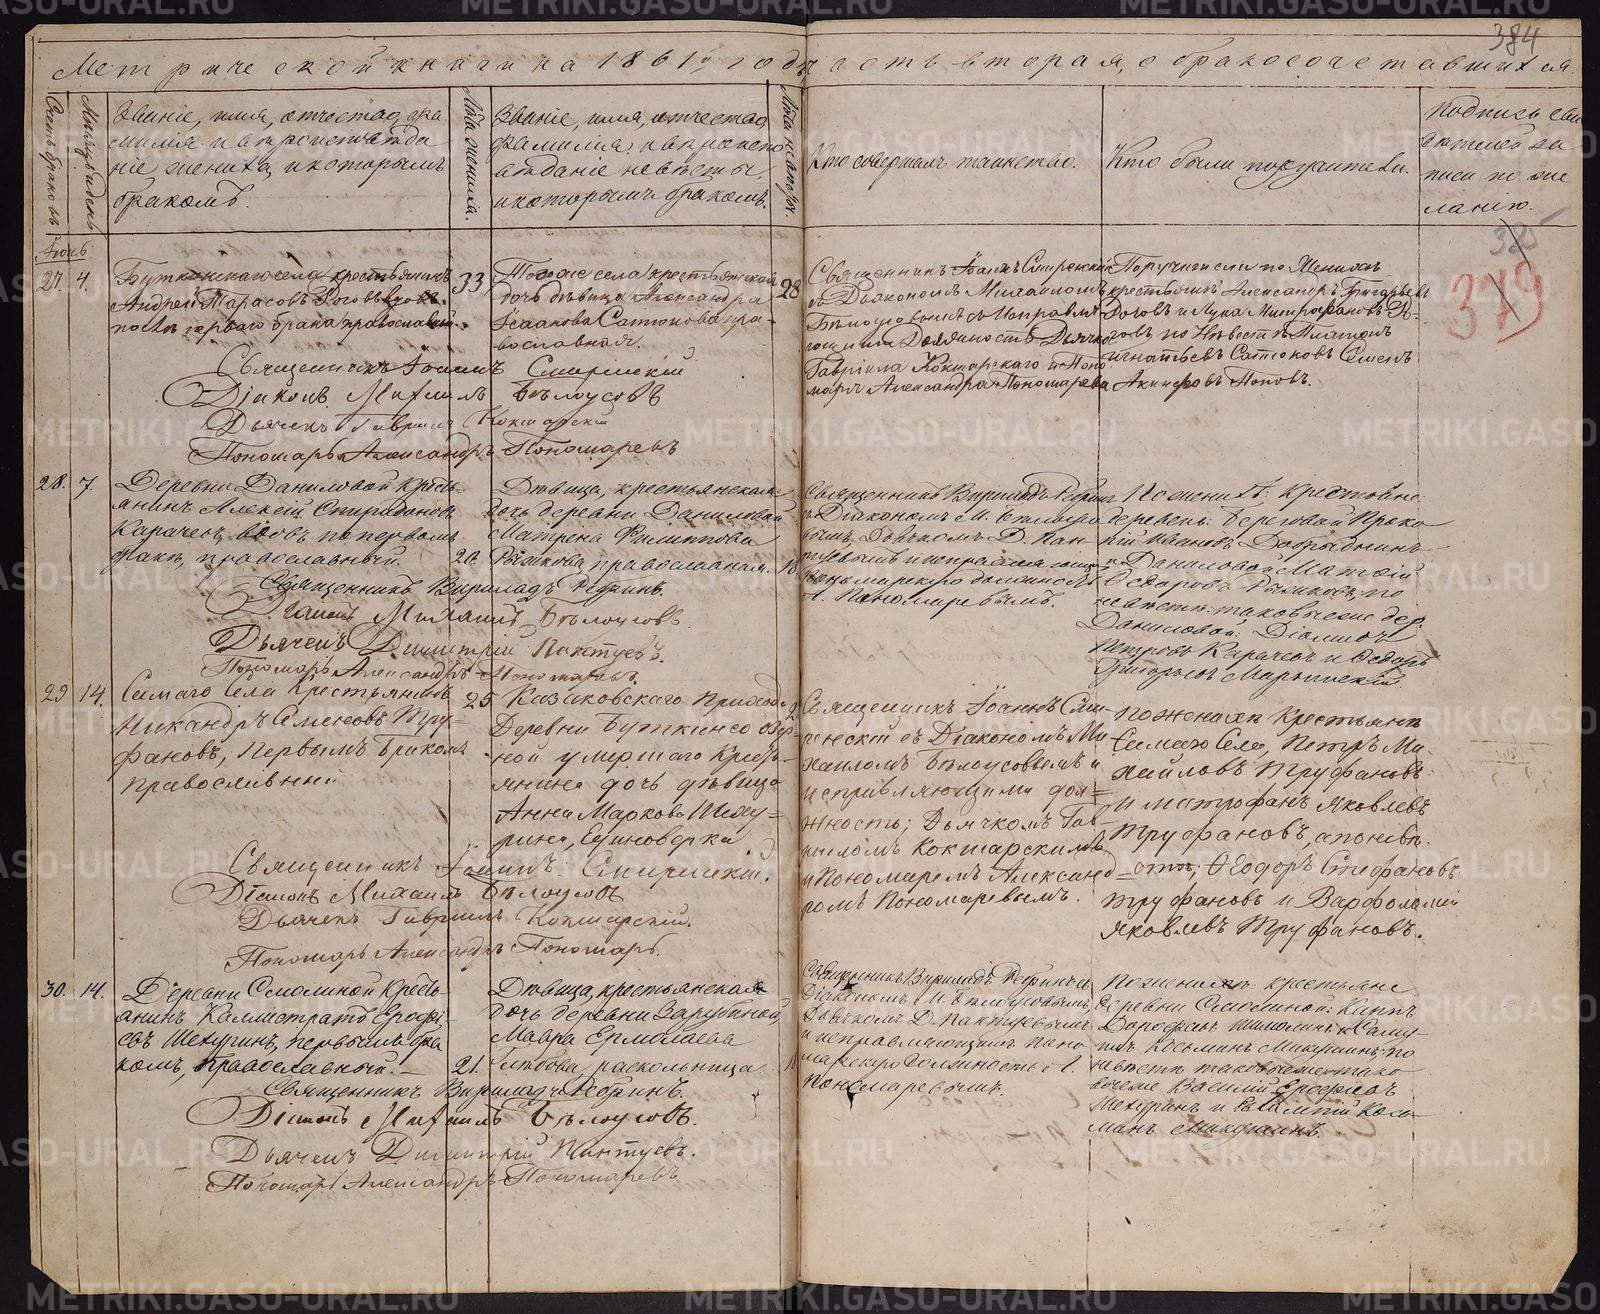 384
Метрической книги на 1861й годъ часть вторая, о бракосочетавшихся.
Счетъ браковъ
Мѣсяцъ и день
Званіе, имя, отчество, фа
милія и вѣроисповѣда
ніе жениха, и которымъ
бракомъ.
Лѣта жениха.
Званіе, имя, отчество,
фамилія и вѣроиспо
вѣданіе невѣсты,
и которымъ бракомъ.
Лѣта невѣсты.
Кто совершалъ таинство.
Кто были поручители.
Подпись сви
дѣтелей за
писи по же
ланію.
385
379
Іюнь
27. 4.
Буткинскаго села крестьянинъ
Андрей Тарасовъ Роговъ вдовъ
послѣ перваго брака православный.
33
Тогоже села крестьянская
дочь дѣвица Александра
Исаакова Сатюкова пра-
вославная.
28
Священникъ Іоаннъ Смиренскій
съ Діакономъ Михаиломъ
Бѣлоусовымъ и исправля
ющими Должность Дьячка
Гавріила Кокшарскаго и Поно
маря Александра Пономарева
Поручители по Женихѣ
крестьяне Александръ Григорьевъ
Роговъ и Лука Митрофановъ Ро
говъ, по Невѣстѣ Платонъ
Игнатьевъ Сатюковъ Семенъ
Акинфовъ Поповъ.
Священникъ Іоаннъ Смиренскій
Діаконъ Михаилъ Бѣлоусовъ
Дьячекъ Гавріилъ Кокшарскій
Пономарь Александръ Пономаревъ
28. 7.
Деревни Даниловой кресть-
янинъ Алексій Спиридоновъ
Карачевъ, вдовъ по первомъ
бракѣ, православный.
20.
Дѣвица, крестьянская
дочь деревни Даниловой
Матрена Филиппова
Рычкова, православная.
18.
Священникъ Вириладъ Рефринъ
съ Діакономъ М. Бѣлоусо
вымъ, Дьячкомъ Д. Пан
туевымъ и исправляющ
пономарскую должность
А. Пономаревымъ.
По женихѣ: крестьяне
деревень: Береговой Проко
пій Ивановъ Добрынинъ
и Даниловой Матвій
Ѳедоровъ Рычковъ, по
невѣстѣ: таковыеже дер.
Даниловой:
Петровъ Карачевъ и Ѳедоръ
Григорьевъ
Священникъ Вириладъ Рефринъ.
Діаконъ Михаилъ Бѣлоусовъ.
Дьячекъ Димитрій Пантуевъ.
Пономарь Александръ Пономаревъ.
29 14.
Самаго Села Крестьянинъ
Никандръ Семеновъ Тру-
фановъ, Первымъ Бракомъ
Православный
25
Казаковскаго Прихода
Деревни Буткинсо Озер-
ной умершаго Кресть-
янина дочь дѣвица
Анна Маркова Шеху-
рина, Единовѣрка
Священникъ Іоаннъ Сми-
ренскій съ Діакономъ Ми-
хаиломъ Бѣлоусовымъ и
исправляющими дол=
жность; Дьячкомъ Гав-
рииломъ Кокшарскимъ
и Пономаремъ Александ=
ромъ Пономаревымъ.
По женихѣ Крестьяне
Самаго Села, Петръ Ми-
хайловъ Труфановъ.
и Митрофанъ Яковлевъ
Труфановъ, а по невѣ-
стѣ; Ѳеодоръ Стефановъ
Труфановъ и Варфоломій
Яковлевъ Труфановъ.
Священникъ Іоаннъ Смиренскій.
Діаконъ Михаилъ Бѣлоусовъ
Дьячекъ Гавриилъ Кокшарскій.
Пономарь Александръ Пономарь.
30. 14.
Деревни Смолиной Кресть-
янинъ Каллистратъ Ерофі-
евъ Шехуринъ, первымъ бра
комъ, Православный.
21.
Дѣвица, крестьянская
дочь деревни Зарубиной,
Мавра Ермолаева
Глѣбова, раскольница
Священникъ Вириладъ Рефринъ съ
Діакономъ М. Бѣлоусовымъ,
Дьячкомъ Д. Пантуевымъ
и исправляющимъ поно
марскую должность А.
Пономаревымъ.
По женихѣ: крестьяне
деревни Смолиной: Карпъ
Дорофѣевъ и Саму
илъ Козьминъ Микушинъ, по
невѣстѣ таковыеже
Василій Ерофѣевъ
Шехуринъ и Евлампій Козь-
минъ Микушинъ.
Священникъ Вириладъ Рефринъ.
Діаконъ Михаилъ Бѣлоусовъ.
Дьячекъ Димитрій Пантуевъ.
Пономарь Александръ Пономаревъ.
METRIKI.GASO-URAL.RU